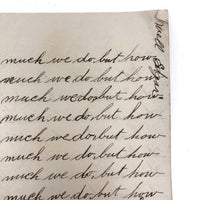 much we do, but how
much we do, but how
much we do, but how
much we do, but how
much we do, but how
much we do, but how
much we do, but how
much we do, but how